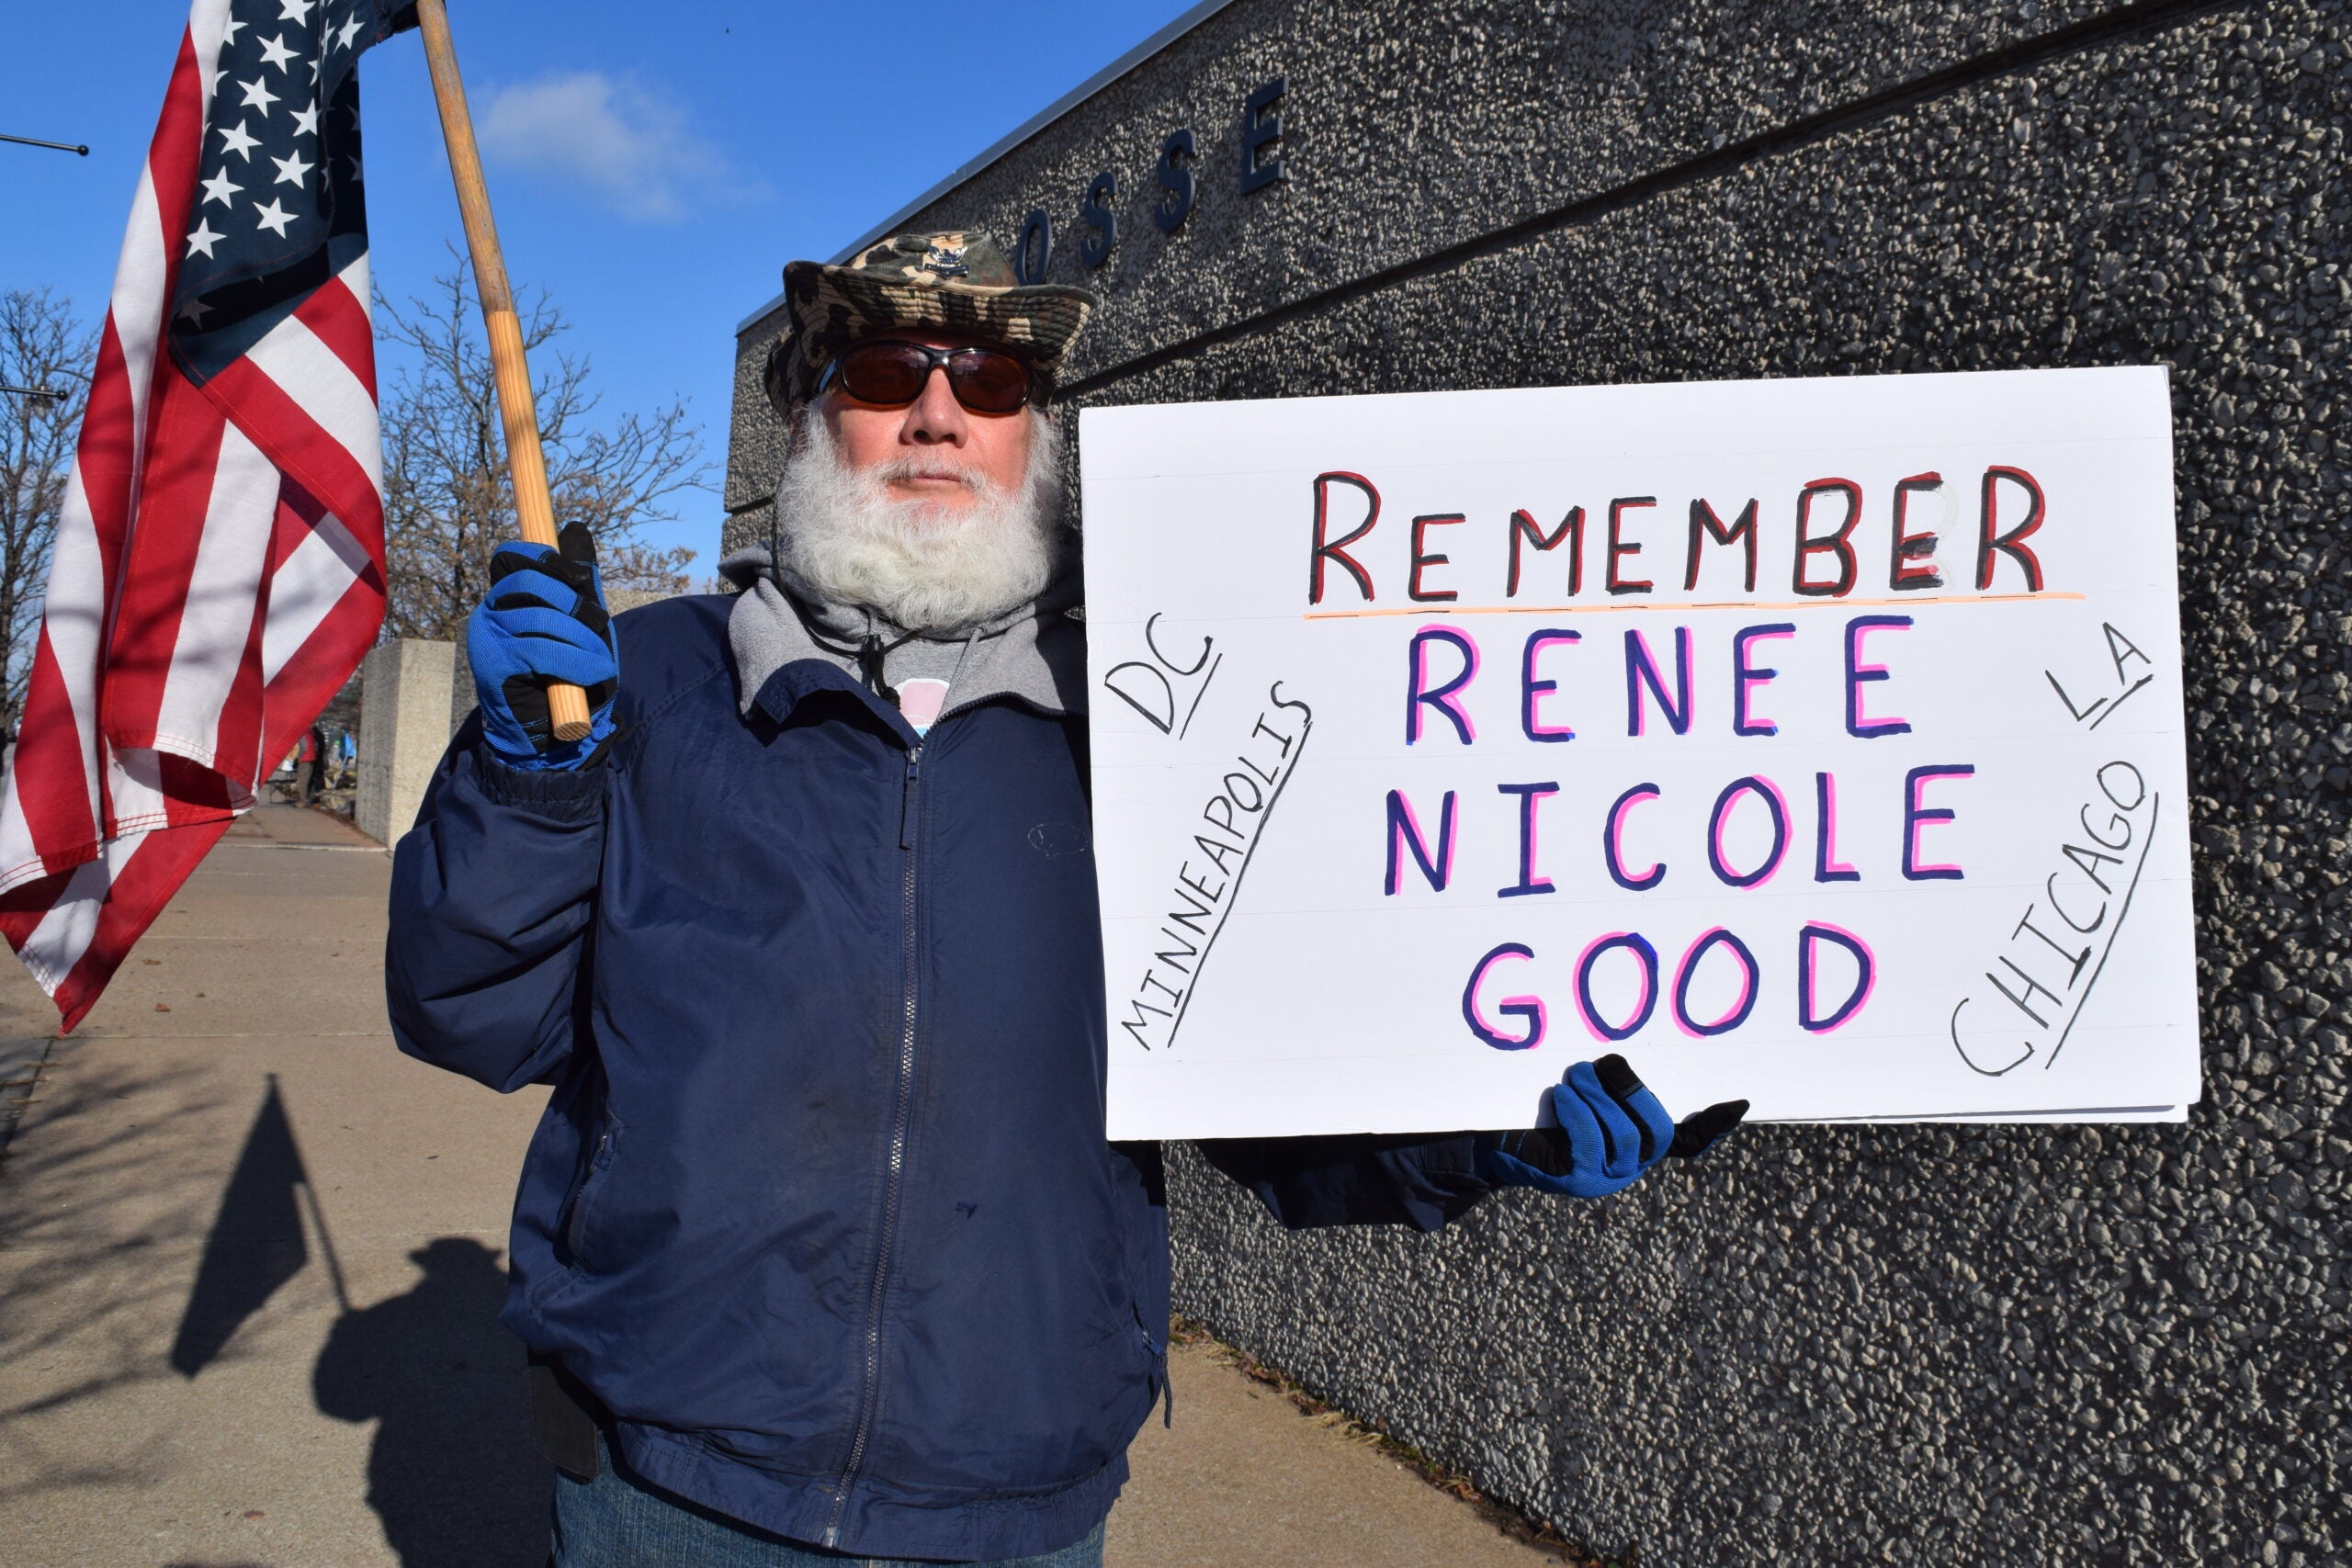 OSSE
REMEMBER
RENEE
NICOLE
GOOD
DC
MINNEAPOLIS
LA
CHICAGO